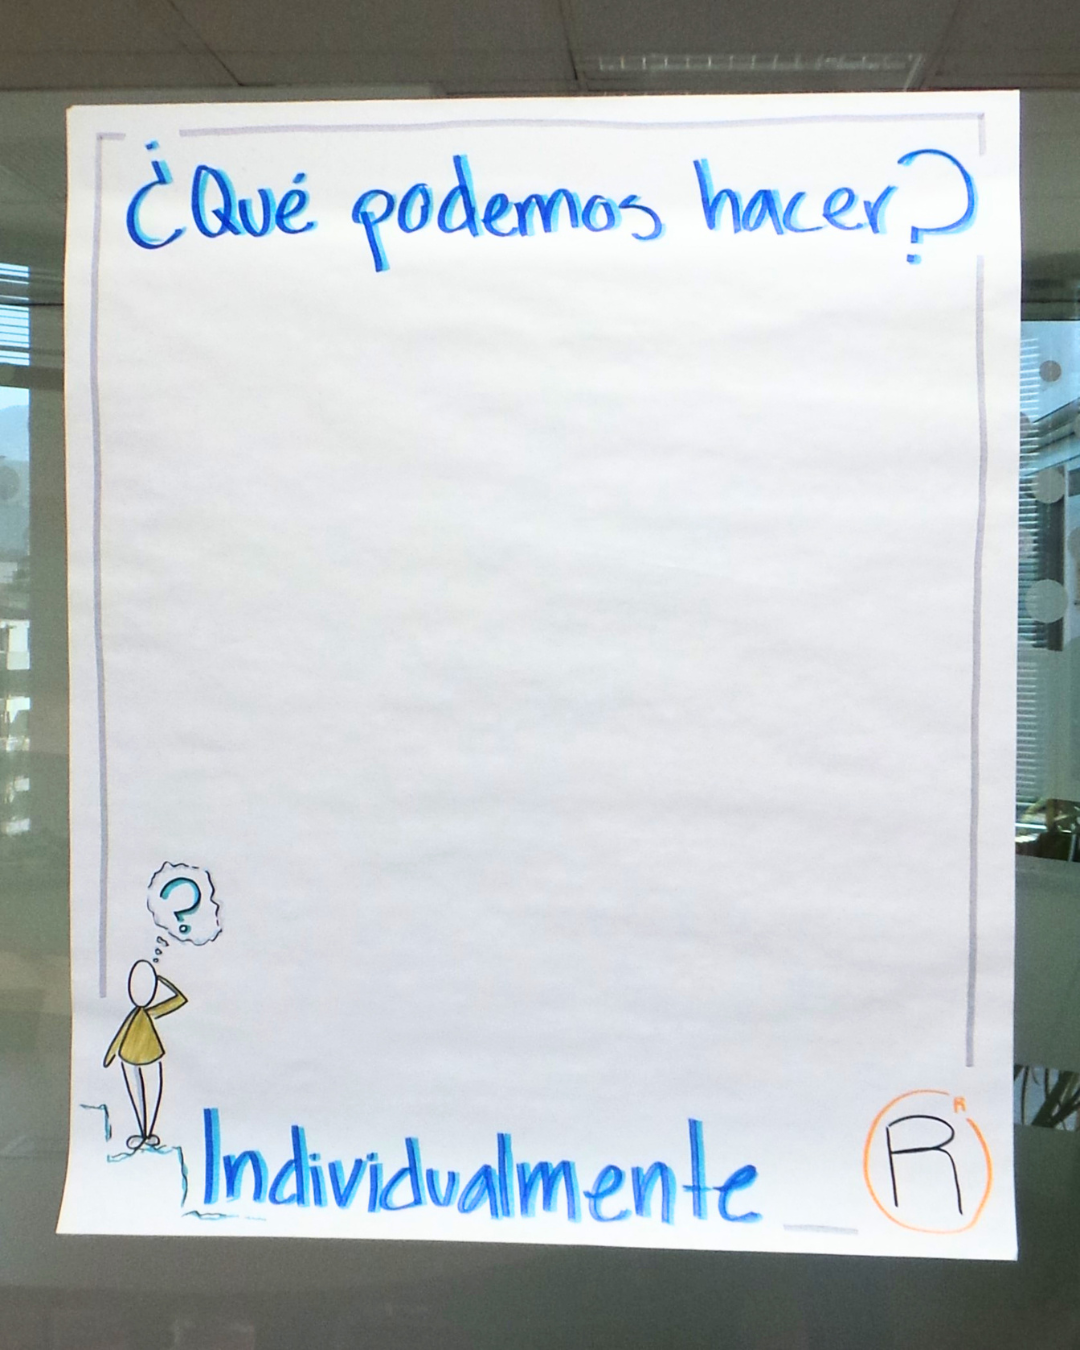 ¿Qué podemos hacer?
?
Individualmente
R
R